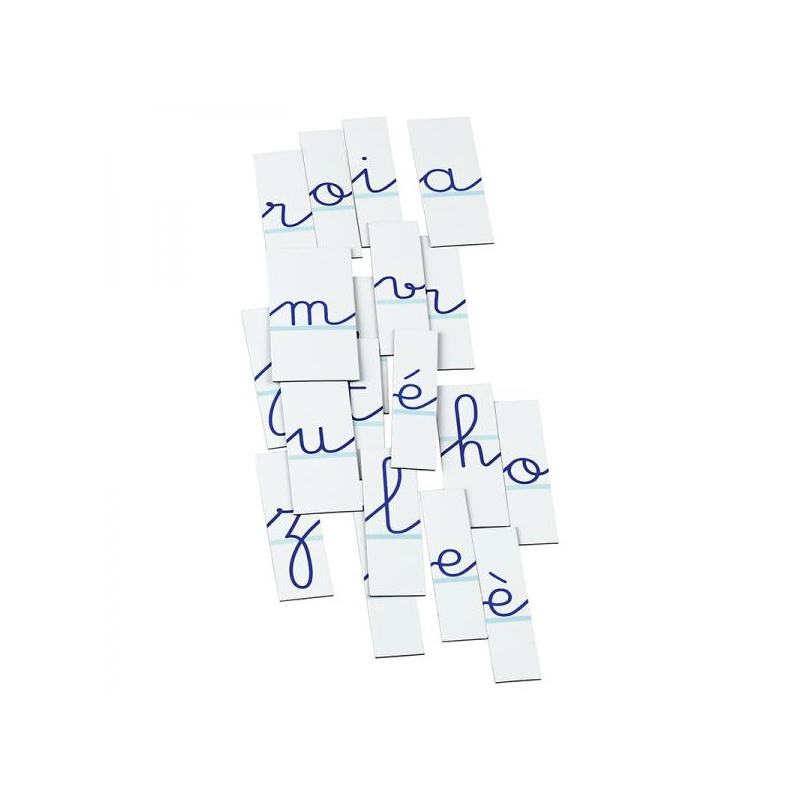 r o i a
m v r
t é
u h o
z l e è